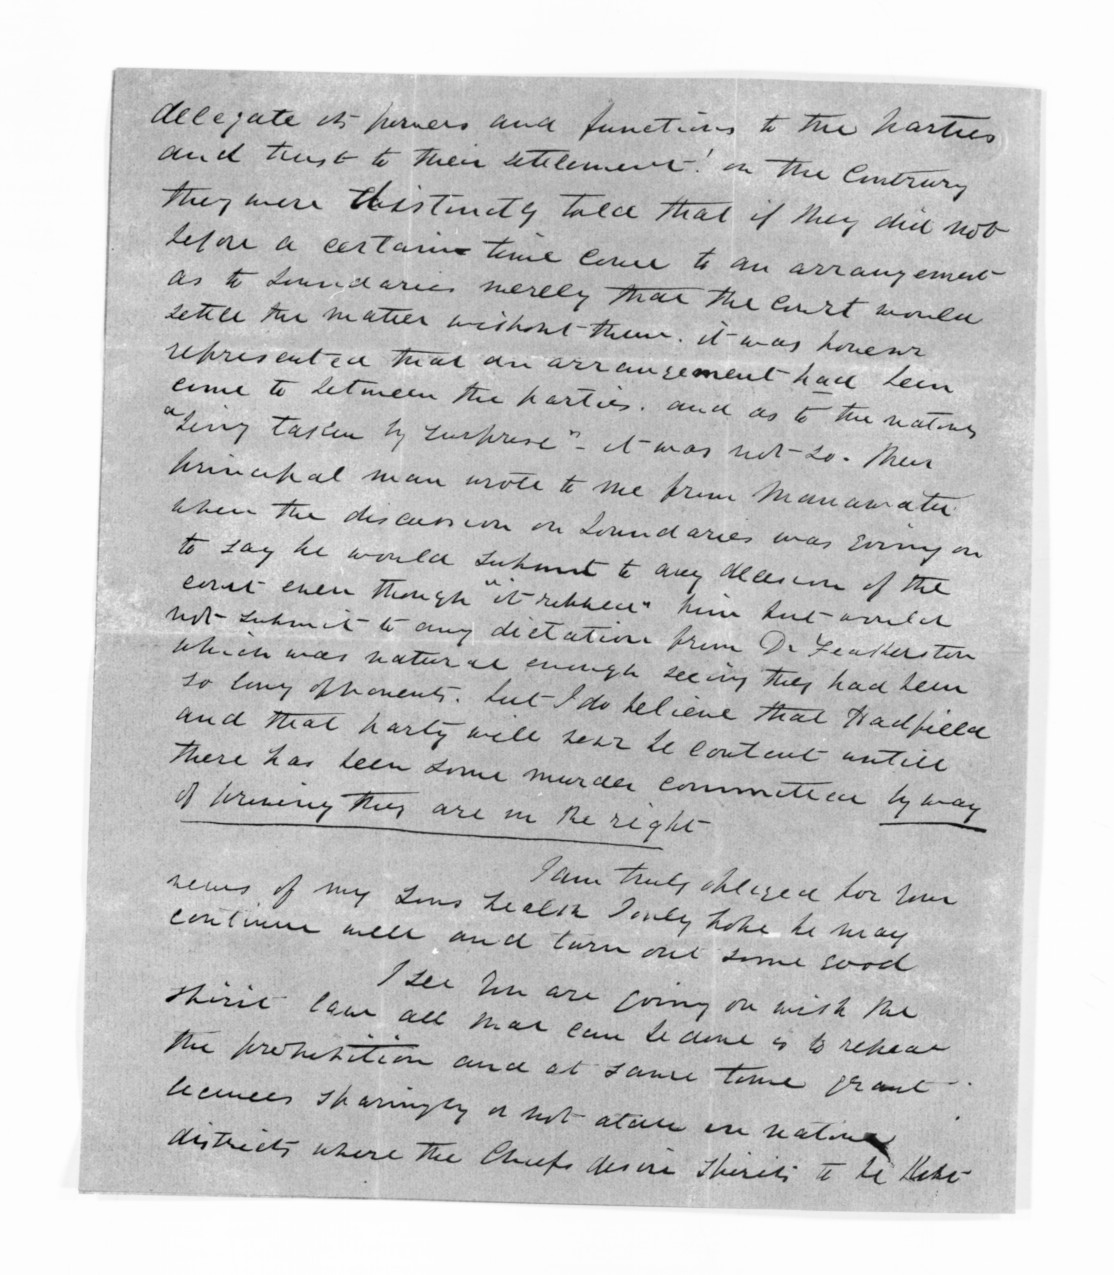 delegate its powers and functions to the parties
and trust to their settlement! on the Contrary
they were distinctly told that if they did not
before a certain time come to an arrangement
as to boundaries merely that the Court would
settle the matter without them. it was however
represented that an arrangement had been
come to between the parties. and as to the natives
"being taken by surprise" - it was not so. their
principal man wrote to me from Manawatu
when the discussion on boundaries was going on
to say he would submit to any decision of the
court even though "it robbed" him but would
not submit to any dictation from Dr Featherston
which was natural enough seeing they had been
so long opponents. but I do believe that Hadfield
and that party will never be content untill
there has been some murder committed by way
of proving they are in the right
I am truly obliged for your
news of my sons health I only hope he may
continue well and turn out some good
I see you are going on with the
spirit law all that can be done is to repeal
the prohibition and at same time grant
licences sparingly or not atall in native
districts where the Chiefs desire spirits to be Kept